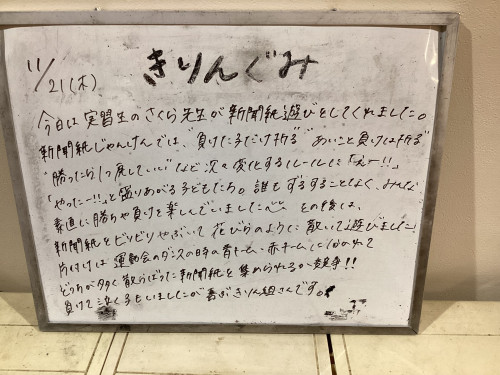 11/21(木)
きりんぐみ
今日は実習生のさくら先生が新聞紙遊びをしてくれました。
新聞紙じゃんけんでは、"負けた子だけ折る" "あいこと負けは折る"
"勝ったら1つ戻していい"など次々変化するルールに「えー!!」
「やったー!!」と盛りあがる子どもたち。誰もずるすることなく、みんな
素直に勝ちや負けを楽しんでいました その後は、
新聞紙をビリビリやぶいて花びらのように散いて遊びました!
片付けは運動会のダンスの時の青チーム・赤チームに分かれて
どちらが多く散らばった新聞紙を集められるか競争!!
負けて泣く子もいましたが喜ぶきりん組さんです。